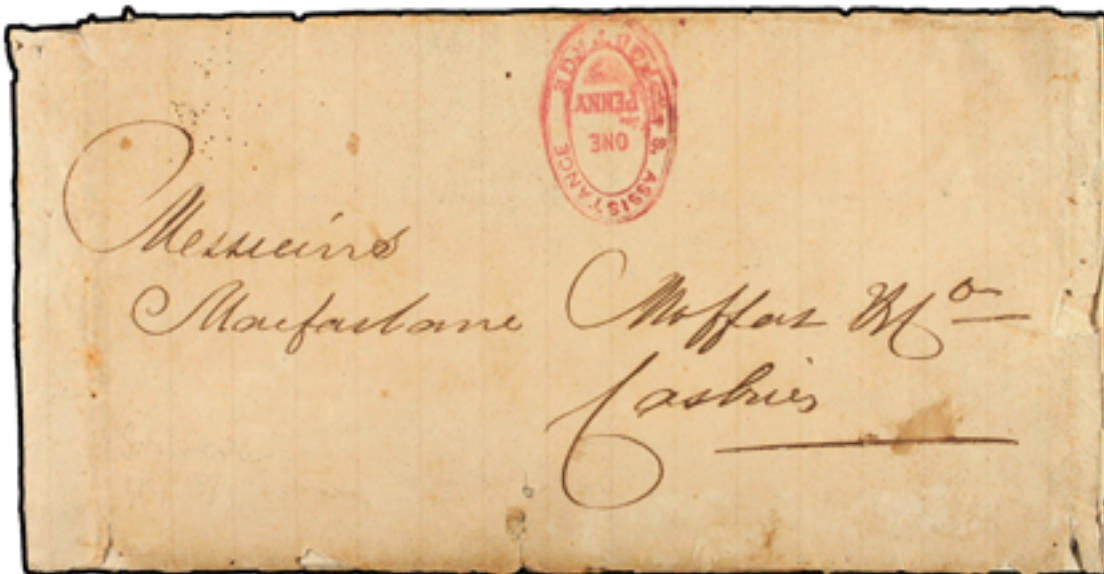 & ASSISTANCE
ONE
PENNY
Messieurs
Macfarlane Moffat & Co
Castries